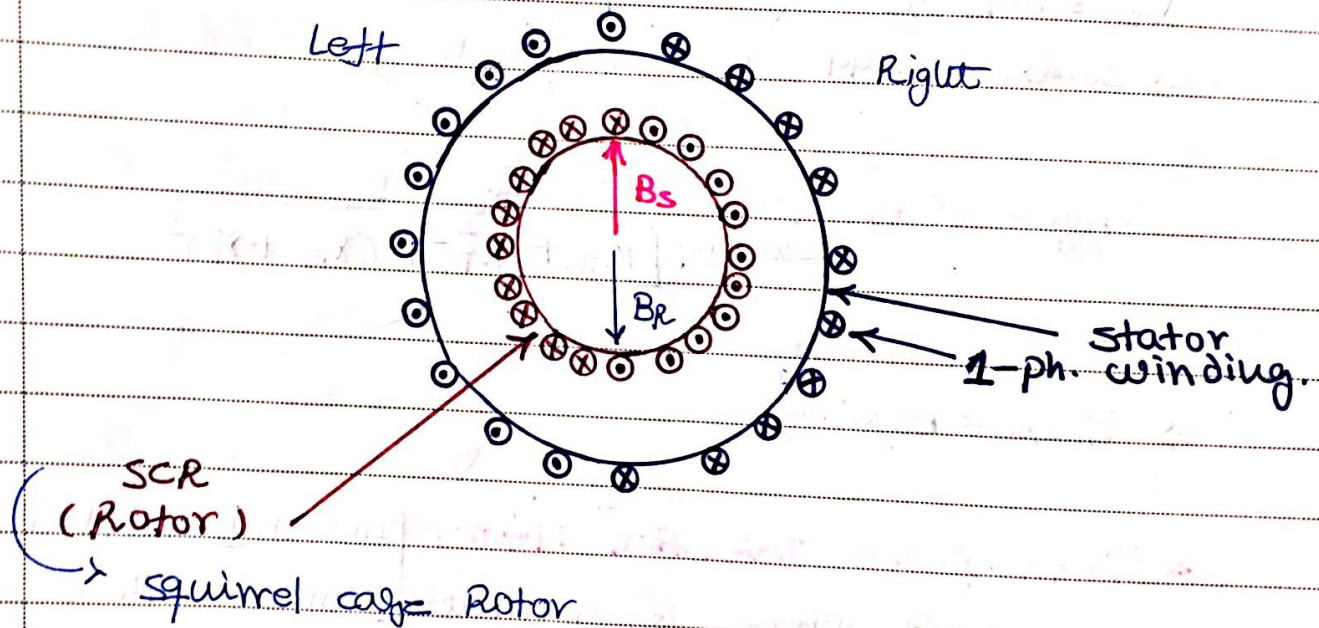 Left
Right
Bs
BR
stator
1-ph. winding.
SCR
(Rotor)
squirrel cage Rotor